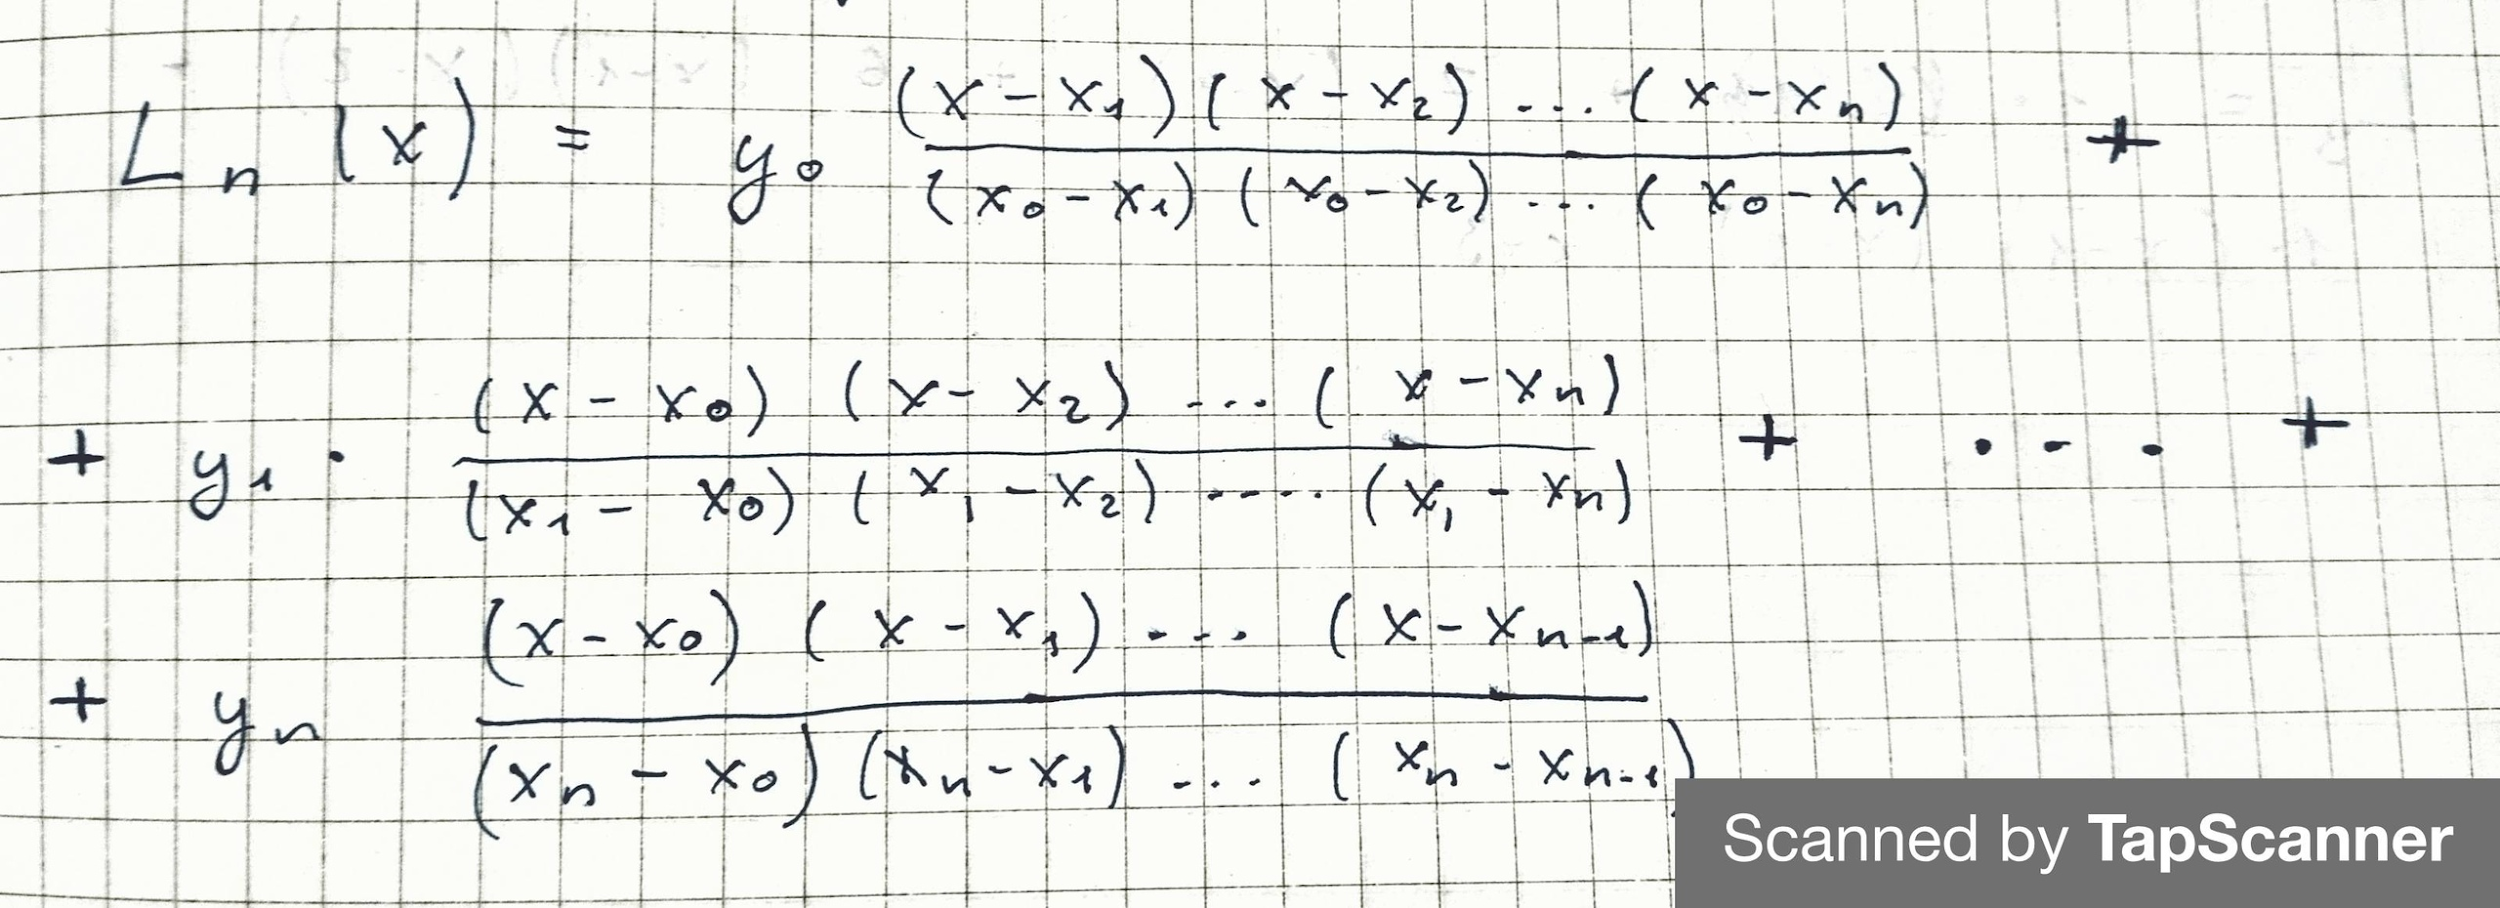 L_n(x) = y_0 \frac{(x - x_1)(x - x_2) \dots (x - x_n)}{(x_0 - x_1)(x_0 - x_2) \dots (x_0 - x_n)} +
+ y_1 \cdot \frac{(x - x_0)(x - x_2) \dots (x - x_n)}{(x_1 - x_0)(x_1 - x_2) \dots (x_1 - x_n)} + \dots +
+ y_n \frac{(x - x_0)(x - x_1) \dots (x - x_{n-1})}{(x_n - x_0)(x_n - x_1) \dots (x_n - x_{n-1})}
Scanned by TapScanner